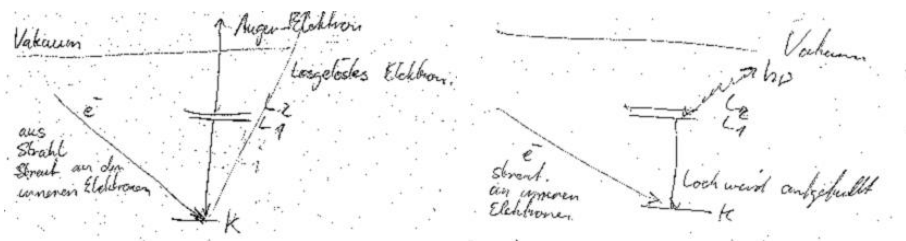 Auger-Elektron
Vakuum
losgelöstes Elektron.
e⁻
L2
L1
aus
Strahl
streut an den
inneren Elektronen
K
Vakuum
hν
L2
L1
e⁻
streut
an inneren
Elektronen
Loch wird aufgefüllt
K